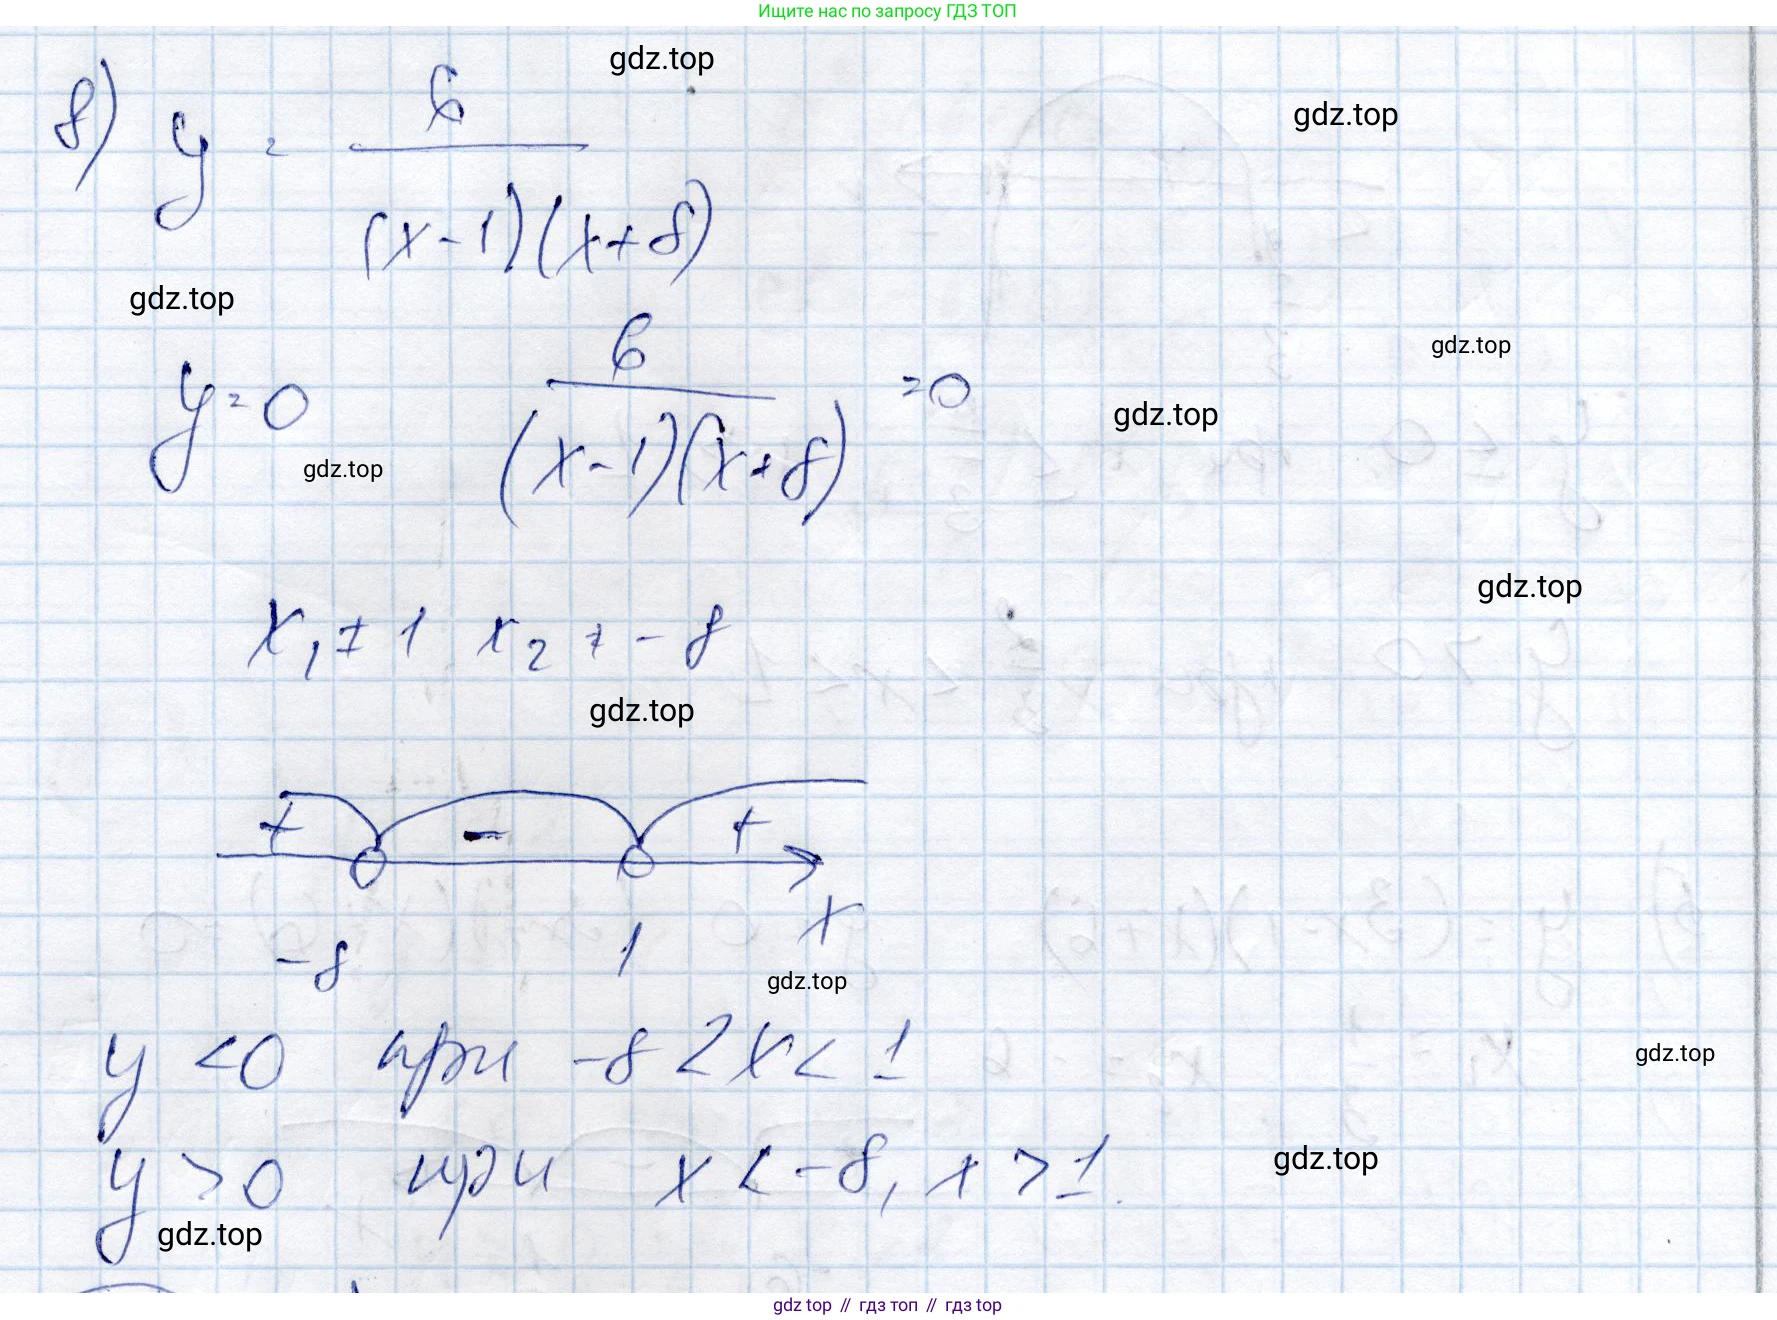 Ищите нас по запросу ГДЗ ТОП
gdz.top
gdz.top
8) y = 6 / (x-1)(x+8)
gdz.top
gdz.top
y=0 6 / (x-1)(x+8) =0
gdz.top
gdz.top
gdz.top
x₁ ≠ 1 x₂ ≠ -8
gdz.top
+ - +
-8 1 x
gdz.top
y <0 при -8<x<1
gdz.top
y >0 при x<-8, x>1.
gdz.top
gdz.top
gdz top // гдз топ // гдз top